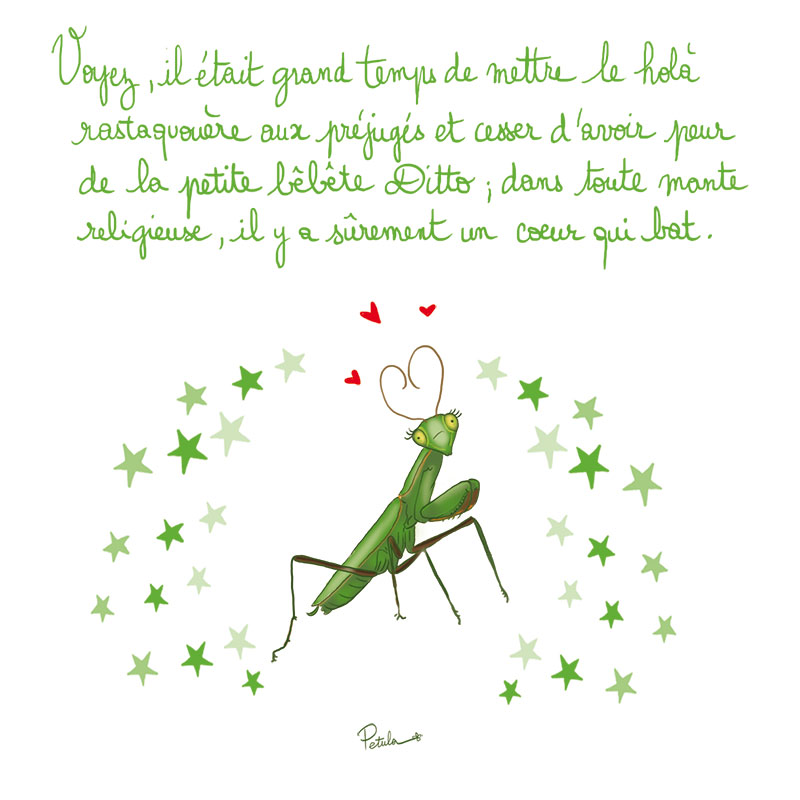 Voyez, il était grand temps de mettre le holà
rastaquouère aux préjugés et cesser d'avoir peur
de la petite bêbête Ditto ; dans toute mante
religieuse, il y a sûrement un coeur qui bat.
Petula